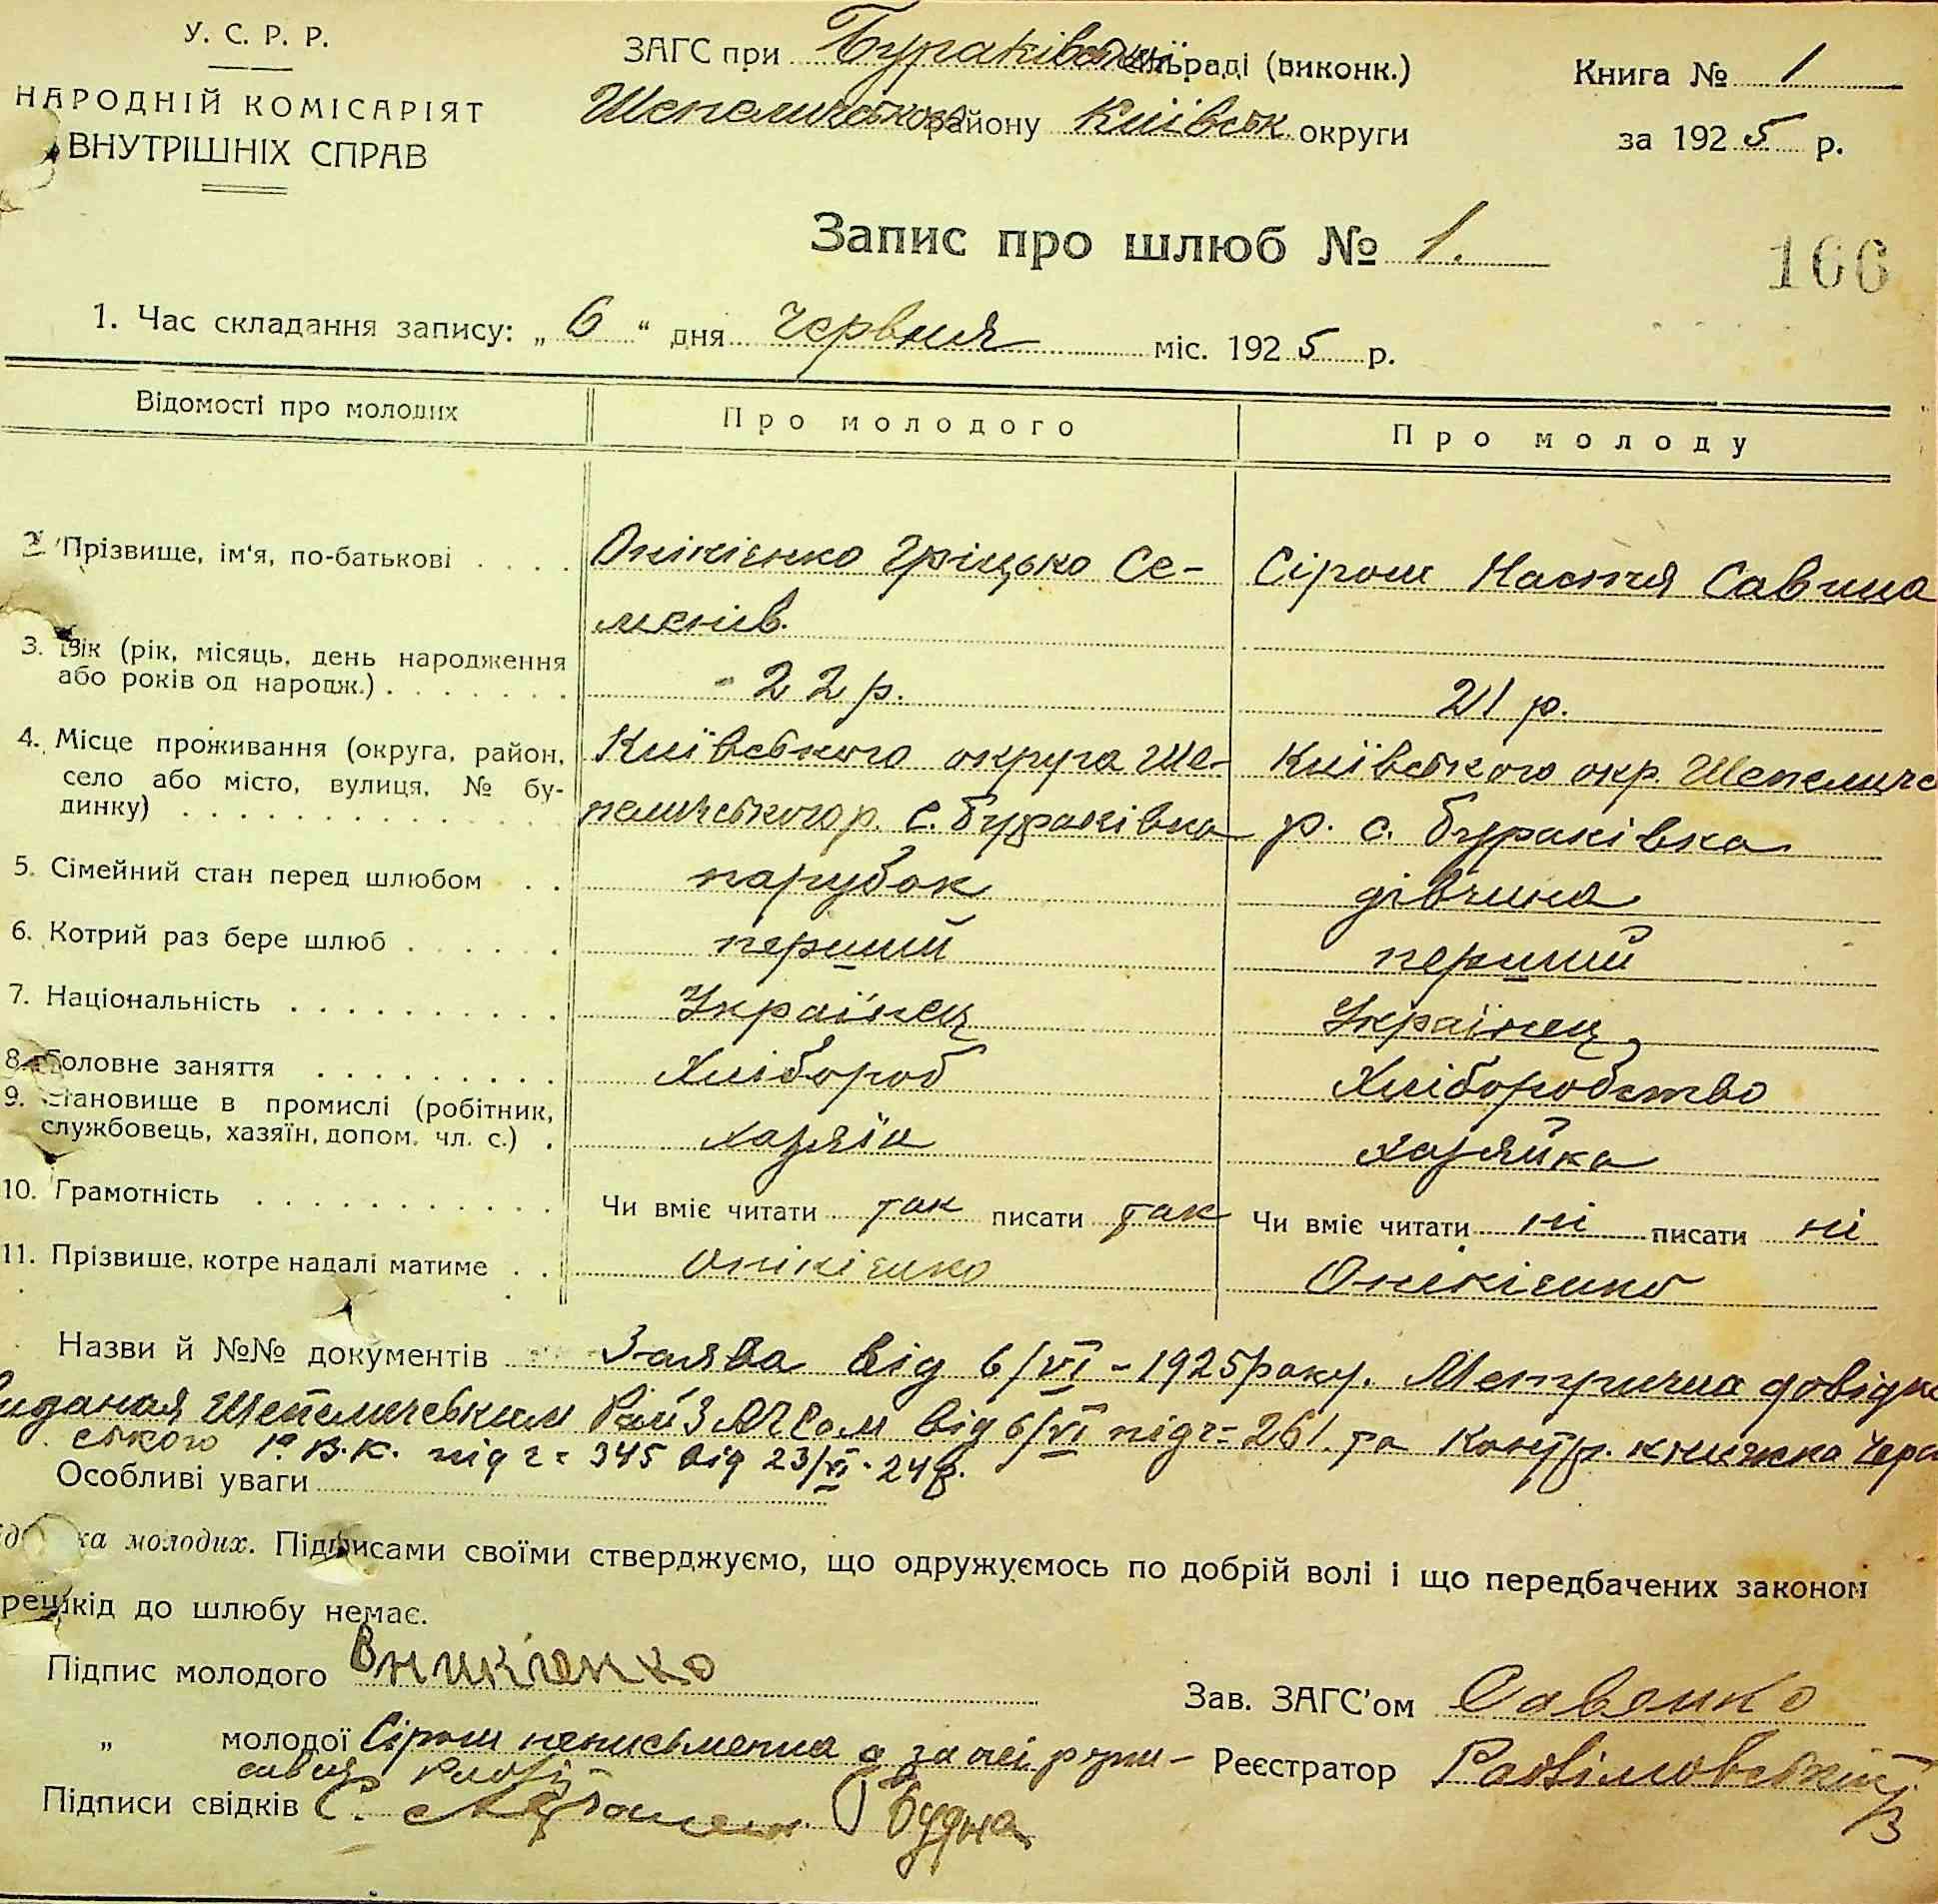 У. С. Р. Р.
НАРОДНІЙ КОМІСАРІЯТ
ВНУТРІШНІХ СПРАВ
ЗАГС при Бураківській сільраді (виконк.)
Шепелицького району Київськ округи
Книга № 1
за 1925 р.
Запис про шлюб № 1.
166
1. Час складання запису: „ 6 “ дня червня міс. 1925 р.
Відомості про молодих
Про молодого
Про молоду
2. Прізвище, ім'я, по-батькові . . . .
Онікієнко Гріцько Се-
менів.
Сірош Настя Савина
3. Вік (рік, місяць, день народження
або років од народж.) . . . . . . .
- 22 р.
21 р.
4. Місце проживання (округа, район,
село або місто, вулиця, № бу-
динку) . . . . . . . . . . . . . .
Київського округа Ше-
пеличського р. с. Бураківка
Київського окр. Шепеличс
р. с. Бураківка
5. Сімейний стан перед шлюбом . .
парубок
дівчина
6. Котрий раз бере шлюб . . . . . .
перший
перший
7. Національність . . . . . . . . . .
Українец
Українец
8. Головне заняття . . . . . . . . .
Хлібороб
Хліборобство
9. Становище в промислі (робітник,
службовець, хазяїн, допом. чл. с.) .
хазяїн
хазяйка
10. Грамотність . . . . . . . . . . .
Чи вміє читати так писати так
Чи вміє читати ні писати ні
11. Прізвище, котре надалі матиме . .
Онікієнко
Онікієнко
Назви й №№ документів Заява від 6/VI - 1925 року. Метрична довідка
видання Шепеличським РайЗАГСом від 6/VI під ч = 261. та контр. книжка Чера
ського Р.В.К. під ч = 345 від 23/VI - 24 р.
Особливі уваги
ка молодих. Підписами своїми стверджуємо, що одружуємось по добрій волі і що передбачених законом
решкід до шлюбу немає.
Підпис молодого Оникіенко
Зав. ЗАГС'ом Савенко
„ молодої Сірош неписьменна а за неі
Реєстратор
Підписи свідків С. Будна